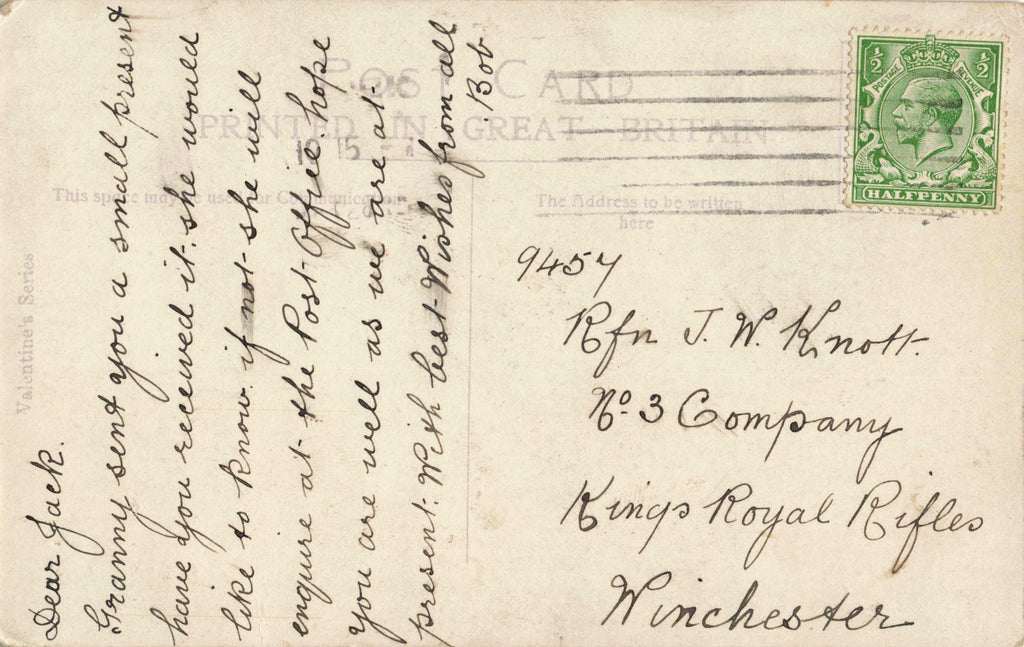 POST CARD
PRINTED IN GREAT BRITAIN
This space may be used for Communication
The Address to be written
here
Valentine's Series
½ ½
POSTAGE REVENUE
HALFPENNY
15
Dear Jack.
Granny sent you a small present
have you received it. she would
like to know. if not she will
enquire at the Post Office. hope
you are well as we are at
present. With best Wishes from all
Bob
9457
Rfn J. W. Knott.
No. 3 Company
Kings Royal Rifles
Winchester